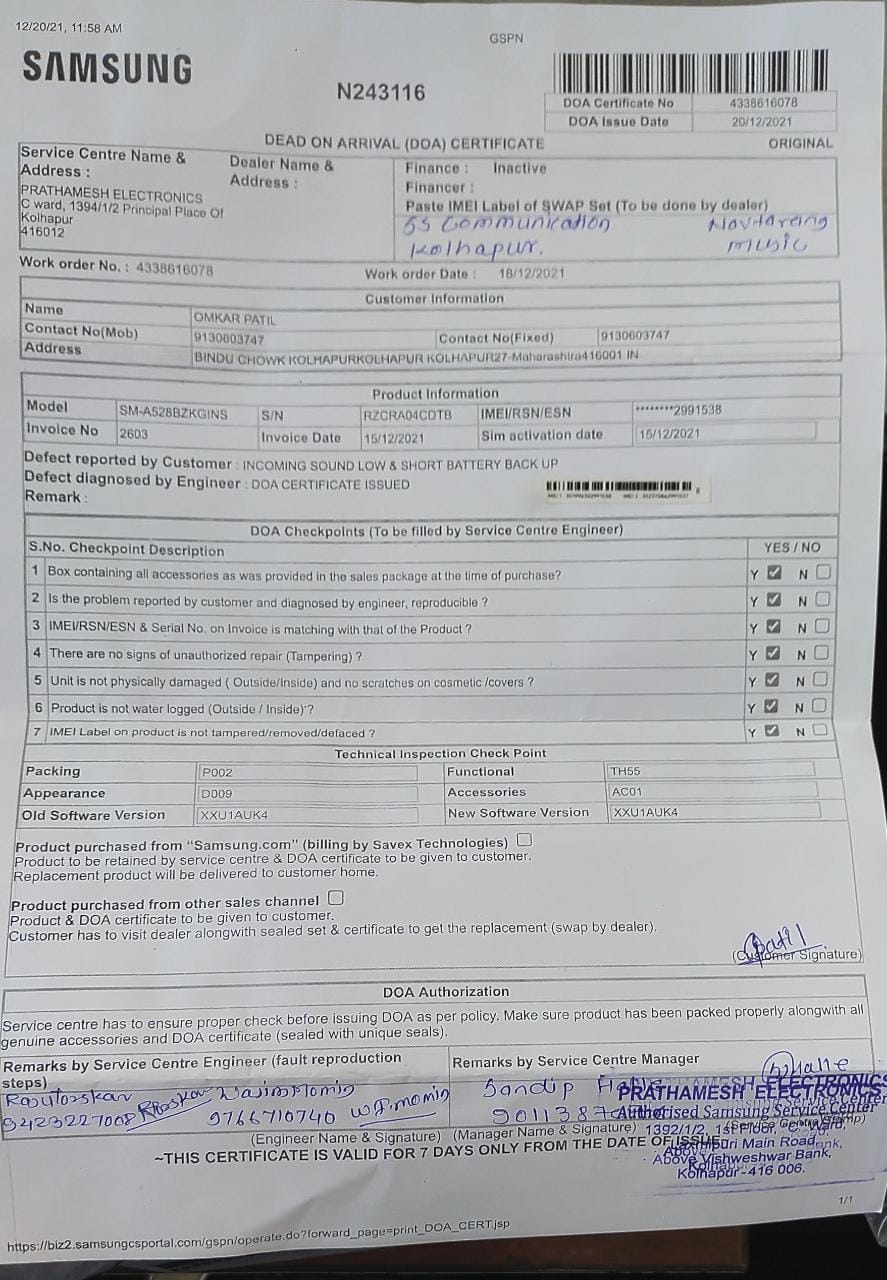 12/20/21, 11:58 AM
GSPN
SAMSUNG
N243116
DOA Certificate No 4338616078
DOA Issue Date 20/12/2021
DEAD ON ARRIVAL (DOA) CERTIFICATE
ORIGINAL
Service Centre Name & Address :
PRATHAMESH ELECTRONICS
C ward, 1394/1/2 Principal Place Of
Kolhapur
416012
Dealer Name &
Address :
Finance : Inactive
Financer :
Paste IMEI Label of SWAP Set (To be done by dealer)
SS Communication Navtarang
Kolhapur. music
Work order No. : 4338616078 Work order Date : 18/12/2021
Customer Information
Name OMKAR PATIL
Contact No(Mob) 9130603747 Contact No(Fixed) 9130603747
Address BINDU CHOWK KOLHAPURKOLHAPUR KOLHAPUR27-Maharashtra416001 IN
Product Information
Model SM-A528BZKGINS S/N RZCRA04CDTB IMEI/RSN/ESN ********2991538
Invoice No 2603 Invoice Date 15/12/2021 Sim activation date 15/12/2021
Defect reported by Customer : INCOMING SOUND LOW & SHORT BATTERY BACK UP
Defect diagnosed by Engineer : DOA CERTIFICATE ISSUED
Remark :
DOA Checkpoints (To be filled by Service Centre Engineer)
S.No. Checkpoint Description YES / NO
1 Box containing all accessories as was provided in the sales package at the time of purchase? Y N
2 Is the problem reported by customer and diagnosed by engineer, reproducible ? Y N
3 IMEI/RSN/ESN & Serial No. on Invoice is matching with that of the Product ? Y N
4 There are no signs of unauthorized repair (Tampering) ? Y N
5 Unit is not physically damaged ( Outside/Inside) and no scratches on cosmetic /covers ? Y N
6 Product is not water logged (Outside / Inside) ? Y N
7 IMEI Label on product is not tampered/removed/defaced ? Y N
Technical Inspection Check Point
Packing P002 Functional TH55
Appearance D009 Accessories AC01
Old Software Version XXU1AUK4 New Software Version XXU1AUK4
Product purchased from "Samsung.com" (billing by Savex Technologies)
Product to be retained by service centre & DOA certificate to be given to customer.
Replacement product will be delivered to customer home.
Product purchased from other sales channel
Product & DOA certificate to be given to customer.
Customer has to visit dealer alongwith sealed set & certificate to get the replacement (swap by dealer).
Patil
(Customer Signature)
DOA Authorization
Service centre has to ensure proper check before issuing DOA as per policy. Make sure product has been packed properly alongwith all
genuine accessories and DOA certificate (sealed with unique seals).
Remarks by Service Centre Engineer (fault reproduction
steps)
9423227008
9766710740
Remarks by Service Centre Manager
Sandip
PRATHAMESH ELECTRONICS
Authorised Samsung Service Center
1392/1/2, 1st Floor, C Ward,
Main Road,
Above Vishweshwar Bank,
Kolhapur-416 006.
(Engineer Name & Signature) (Manager Name & Signature)
~THIS CERTIFICATE IS VALID FOR 7 DAYS ONLY FROM THE DATE OF ISSUE
1/1
https://biz2.samsungcsportal.com/gspn/operate.do?forward_page=print_DOA_CERT.jsp